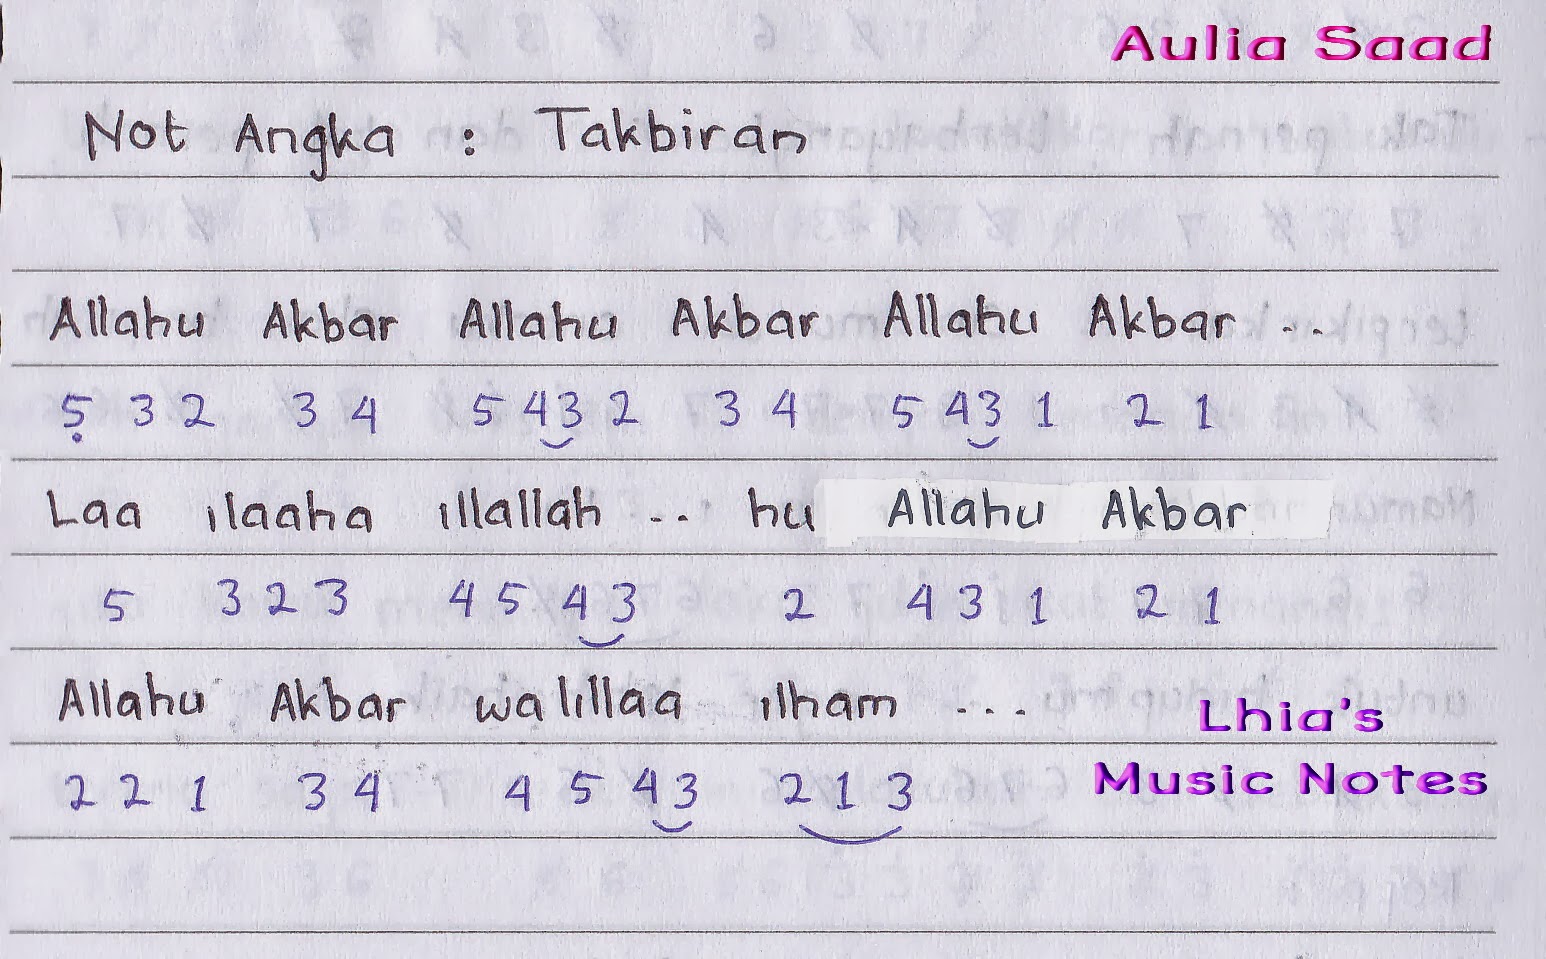 Aulia Saad
Not Angka : Takbiran
Allahu Akbar Allahu Akbar Allahu Akbar ...
5 3 2 3 4 5 4 3 2 3 4 5 4 3 1 2 1
Laa ilaaha illallah ... hu Allahu Akbar
5 3 2 3 4 5 4 3 2 4 3 1 2 1
Allahu Akbar walillaa ilham ...
2 2 1 3 4 4 5 4 3 2 1 3
Lhia's
Music Notes